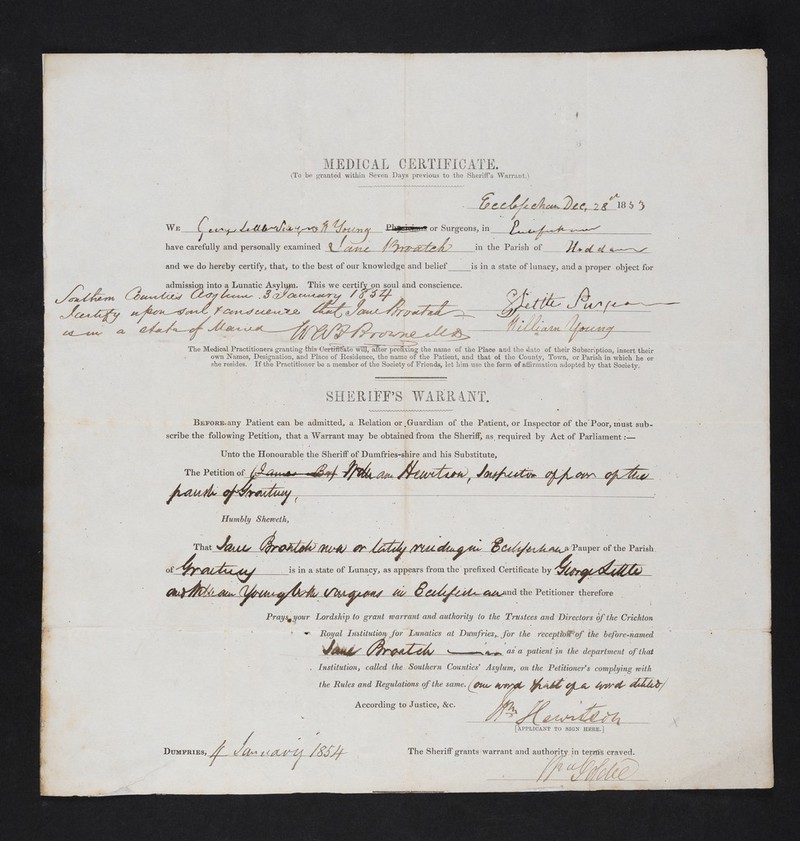 MEDICAL CERTIFICATE.
(To be granted within Seven Days previous to the Sheriff's Warrant.)
Ecclefechan Dec, 28th 1853
WE George Little & William Young Physicians or Surgeons, in Ecclefechan
have carefully and personally examined Jane Broatch in the Parish of Hoddam
and we do hereby certify, that, to the best of our knowledge and belief is in a state of lunacy, and a proper object for
admission into a Lunatic Asylum. This we certify on soul and conscience.
Southern Counties Asylum 3 January 1854
I certify upon soul & conscience that Jane Broatch
is in a state of Mania W A F Browne M D
G Little Surgeon
William Young
The Medical Practitioners granting this Certificate will, after prefixing the name of the Place and the date of their Subscription, insert their
own Names, Designation, and Place of Residence, the name of the Patient, and that of the County, Town, or Parish in which he or
she resides. If the Practitioner be a member of the Society of Friends, let him use the form of affirmation adopted by that Society.
SHERIFF'S WARRANT.
BEFORE any Patient can be admitted, a Relation or Guardian of the Patient, or Inspector of the Poor, must sub-
scribe the following Petition, that a Warrant may be obtained from the Sheriff, as required by Act of Parliament :—
Unto the Honourable the Sheriff of Dumfries-shire and his Substitute,
The Petition of James William Hewitson, Inspector of poor of the
parish of Graitney,
Humbly Sheweth,
That Jane Broatch now or lately residing in Ecclefechan a Pauper of the Parish
of Graitney is in a state of Lunacy, as appears from the prefixed Certificate by George Little
and William Young both surgeons in Ecclefechan and the Petitioner therefore
Prays your Lordship to grant warrant and authority to the Trustees and Directors of the Crichton
Royal Institution for Lunatics at Dumfries, for the reception of the before-named
Jane Broatch as a patient in the department of that
Institution, called the Southern Counties' Asylum, on the Petitioner's complying with
the Rules and Regulations of the same. (one word & part of a word deleted)
According to Justice, &c.
Wm Hewitson
[APPLICANT TO SIGN HERE.]
DUMFRIES, 4 January 1854 The Sheriff grants warrant and authority in terms craved.